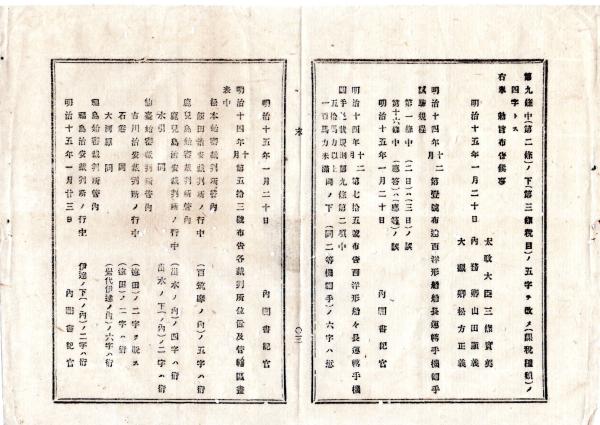 第九條中(第二條)ノ下第三條税目)ノ五字ヲ改メ(課税種類)ノ
四字トス
右奉 勅旨布告候事
明治十五年一月二十日
太政大臣三條實美
內務卿山田顯義
大藏卿松方正義
明治十四年十二月第壹號布達西洋形船船長運轉手機關手
試驗規程
第一條中(二日)ハ(三日)ノ誤
第十六條中(應答)ハ(應答)ノ誤
明治十五年一月二十日 內閣書記官
明治十四年十二月第七拾五號布告西洋形船々長運轉手機
關手免狀規則第九條第二項中
五拾馬力以上
一百馬力未滿 同ノ下(同二等機關手)ノ六字ハ
明治十五年一月二十日 內閣書記官
明治十四年十月第五拾三號布告各裁判所位置及管轄區畫
表中
松本始審裁判所管內
飯田治安裁判所ノ行中 ノ五字ハ衍
鹿兒島始審裁判所管內
鹿兒島治安裁判所ノ行中 (出水ノ內)ノ四字ハ衍
水引 同 出水ノ下(ノ內)ノ二字ハ衍
仙臺始審裁判所管內
古川治安裁判所ノ行中 (遠田)ノ二字ヲ脫ス
石卷 同 (遠田)ノ二字ハ衍
大河原 同 ノ六字ハ衍
福島始審裁判所管內
福島治安裁判所ノ行中 伊達ノ下(ノ內)ノ二字ハ衍
明治十五年一月廿三日 內閣書記官